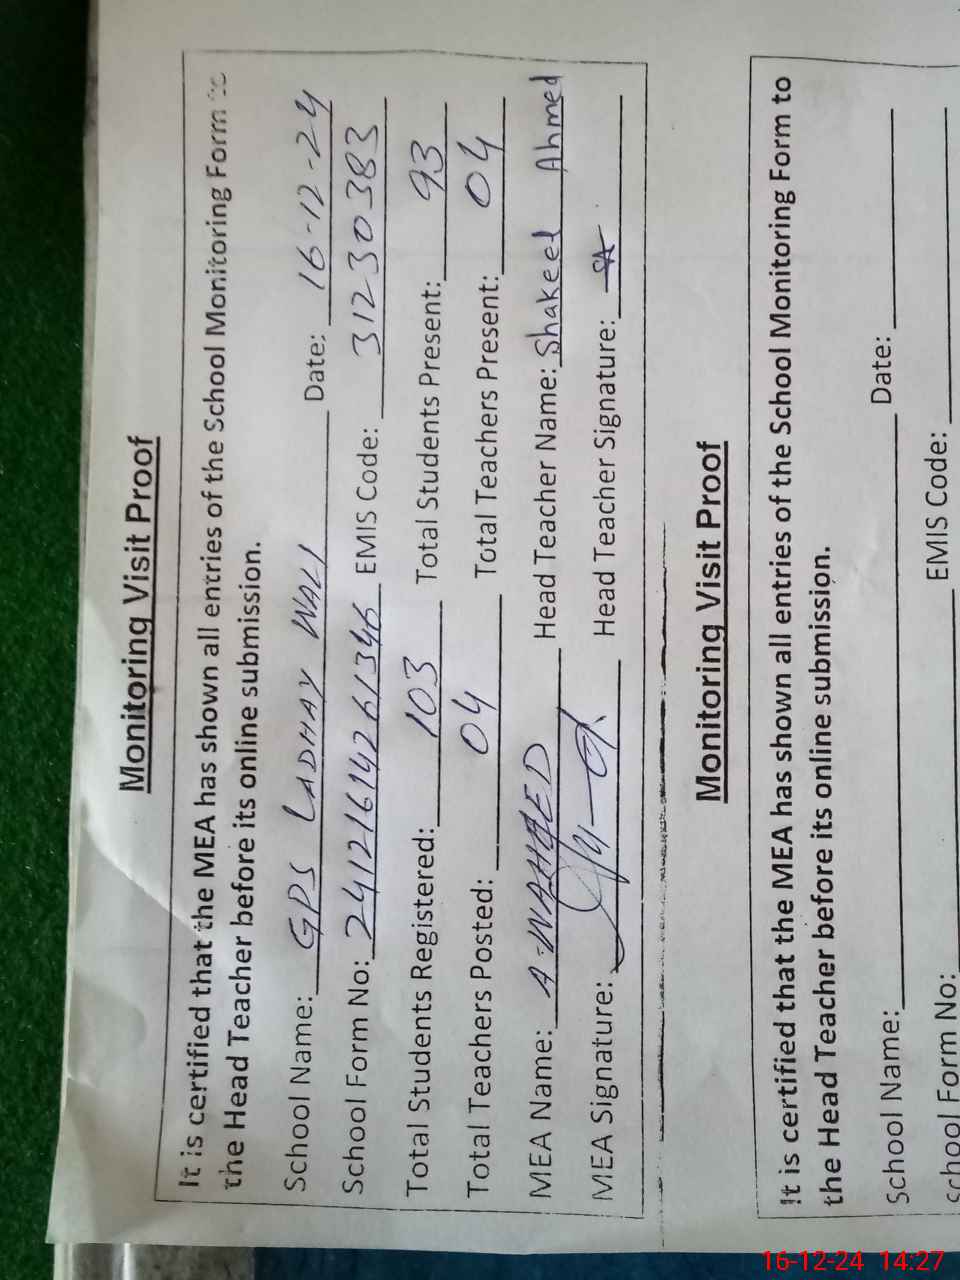 Monitoring Visit Proof
It is certified that the MEA has shown all entries of the School Monitoring Form to
the Head Teacher before its online submission.
School Name: GPS LADHAY WALI Date: 16-12-24
School Form No: 24121614261346 EMIS Code: 31230383
Total Students Registered: 103 Total Students Present: 93
Total Teachers Posted: 04 Total Teachers Present: 04
MEA Name: A-WAHEED Head Teacher Name: Shakeel Ahmed
MEA Signature: Head Teacher Signature: SA
Monitoring Visit Proof
It is certified that the MEA has shown all entries of the School Monitoring Form to
the Head Teacher before its online submission.
School Name: Date:
School Form No: EMIS Code:
16-12-24 14:27